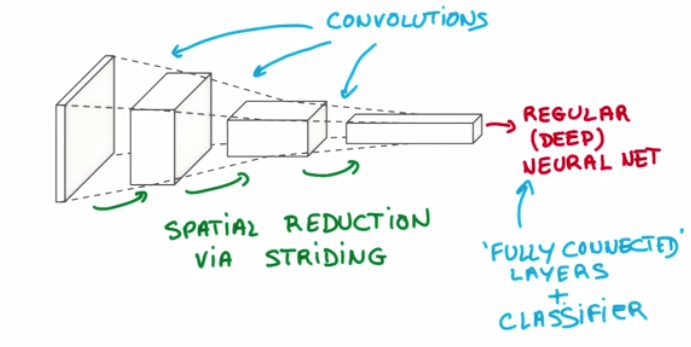 CONVOLUTIONS
REGULAR
(DEEP)
NEURAL NET
SPATIAL REDUCTION
VIA STRIDING
'FULLY CONNECTED'
LAYERS
+
CLASSIFIER